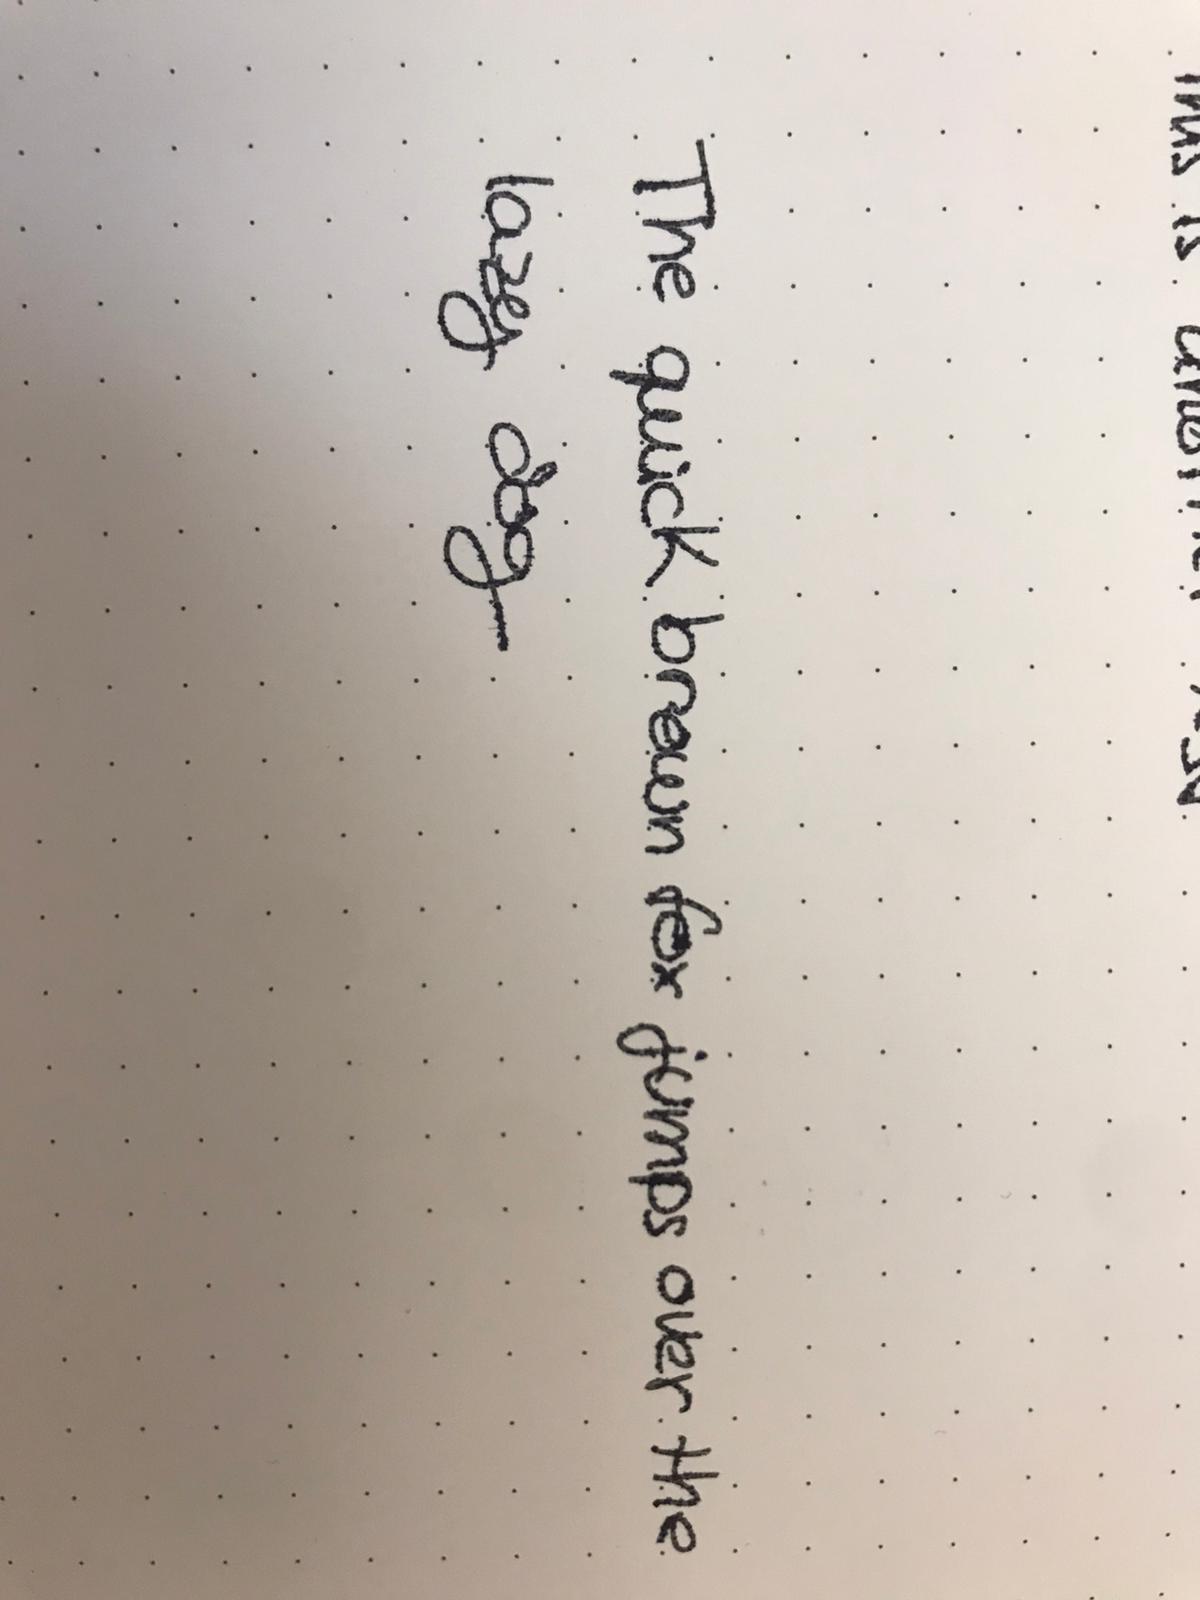 This is another
The quick brown fox jumps over the
lazy dog